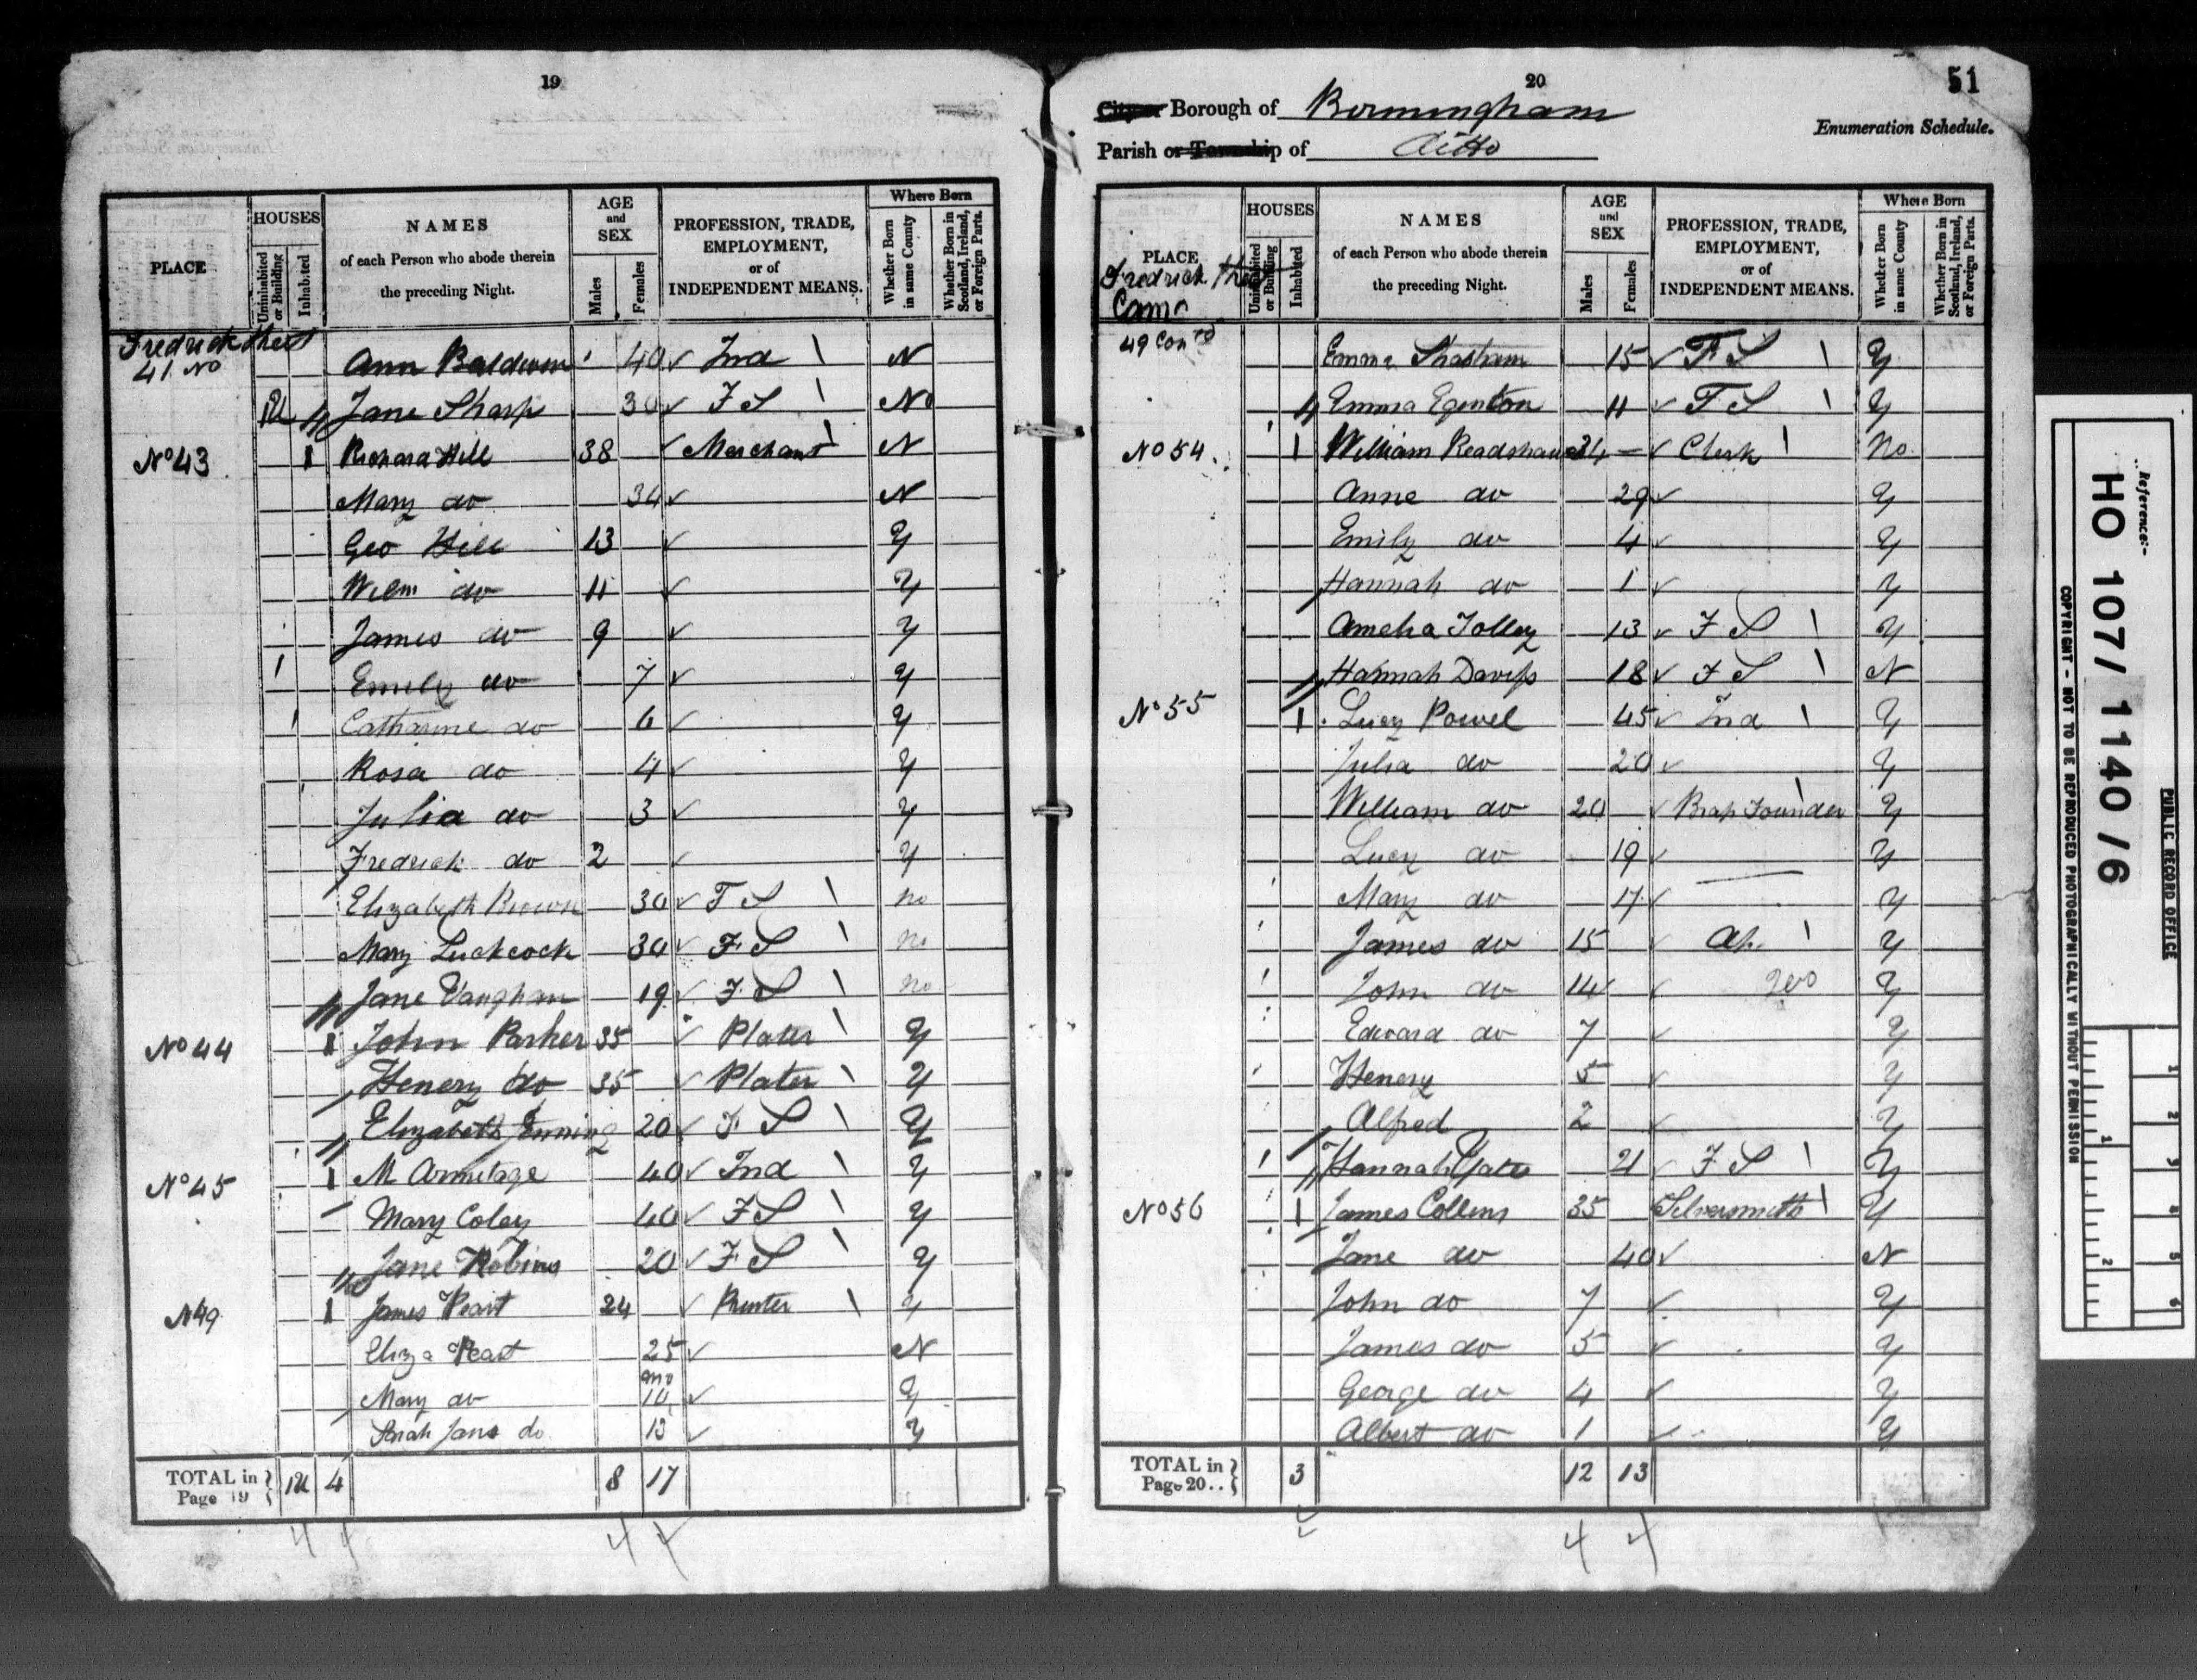 19
PLACE
HOUSES
Uninhabited or Building
Inhabited
NAMES
of each Person who abode therein
the preceding Night.
AGE
and
SEX
Males
Females
PROFESSION, TRADE,
EMPLOYMENT,
or of
INDEPENDENT MEANS.
Where Born
Whether Born in same County
Whether Born in Scotland, Ireland, or Foreign Parts.
Fredrick
41 No Ann Baldwin 40 Ind N
1U Jane Sharp 30 F S No
No 43 1 Richard Hill 38 Merchant N
Mary do 34 N
Geo Hill 13 Y
Wilm do 11 Y
James do 9 Y
Emily do 7 Y
Catharine do 6 Y
Rosa do 4 Y
Julia do 3 Y
Fredrick do 2 Y
Elizabeth Brown 30 F S no
Mary Luckcock 30 F S no
Jane Vaughan 19 F S no
No 44 1 John Parker 35 Plater Y
Henery do 35 Plater Y
Elizabeth Jenning 20 F S Y
No 45 1 M Armitage 40 Ind Y
Mary Coley 40 F S Y
Jane Robins 20 F S Y
No 49 1 James Peart 24 Printer Y
Eliza Peart 25 N
Mary do 10 Y
Sarah Jane do 13 Y
TOTAL in Page 19 1U 4 8 17
20
51
City or Borough of Birmingham
Enumeration Schedule.
Parish or Township of ditto
PLACE
HOUSES
Uninhabited or Building
Inhabited
NAMES
of each Person who abode therein
the preceding Night.
AGE
and
SEX
Males
Females
PROFESSION, TRADE,
EMPLOYMENT,
or of
INDEPENDENT MEANS.
Where Born
Whether Born in same County
Whether Born in Scotland, Ireland, or Foreign Parts.
Fredrick
49 Contd Emma 15 F S Y
Emma Eginton 11 F S Y
No 54 1 William Readshaw 34 Clerk No
Anne do 29 Y
Emily do 4 Y
Hannah do 1 Y
Amelia Tolley 13 F S Y
Hannah Daviss 18 F S N
No 55 1 Lucy Powel 45 Ind Y
Julia do 20 Y
William do 20 Brass Founder Y
Lucy do 19 Y
Mary do 17 Y
James do 15 Ap. Y
John do 14 Y
Edward do 7 Y
Henery 5 Y
Alfred 2 Y
Hannah Yates 21 F S Y
No 56 1 James Collins 35 Silversmith Y
Jane do 40 N
John do 7 Y
James do 5 Y
George do 4 Y
Albert do 1 Y
TOTAL in Page 20.. 3 12 13
Reference:-
HO 107/1140/6
PUBLIC RECORD OFFICE
COPYRIGHT - NOT TO BE REPRODUCED PHOTOGRAPHICALLY WITHOUT PERMISSION
1
2
1
2
3
4
5
6